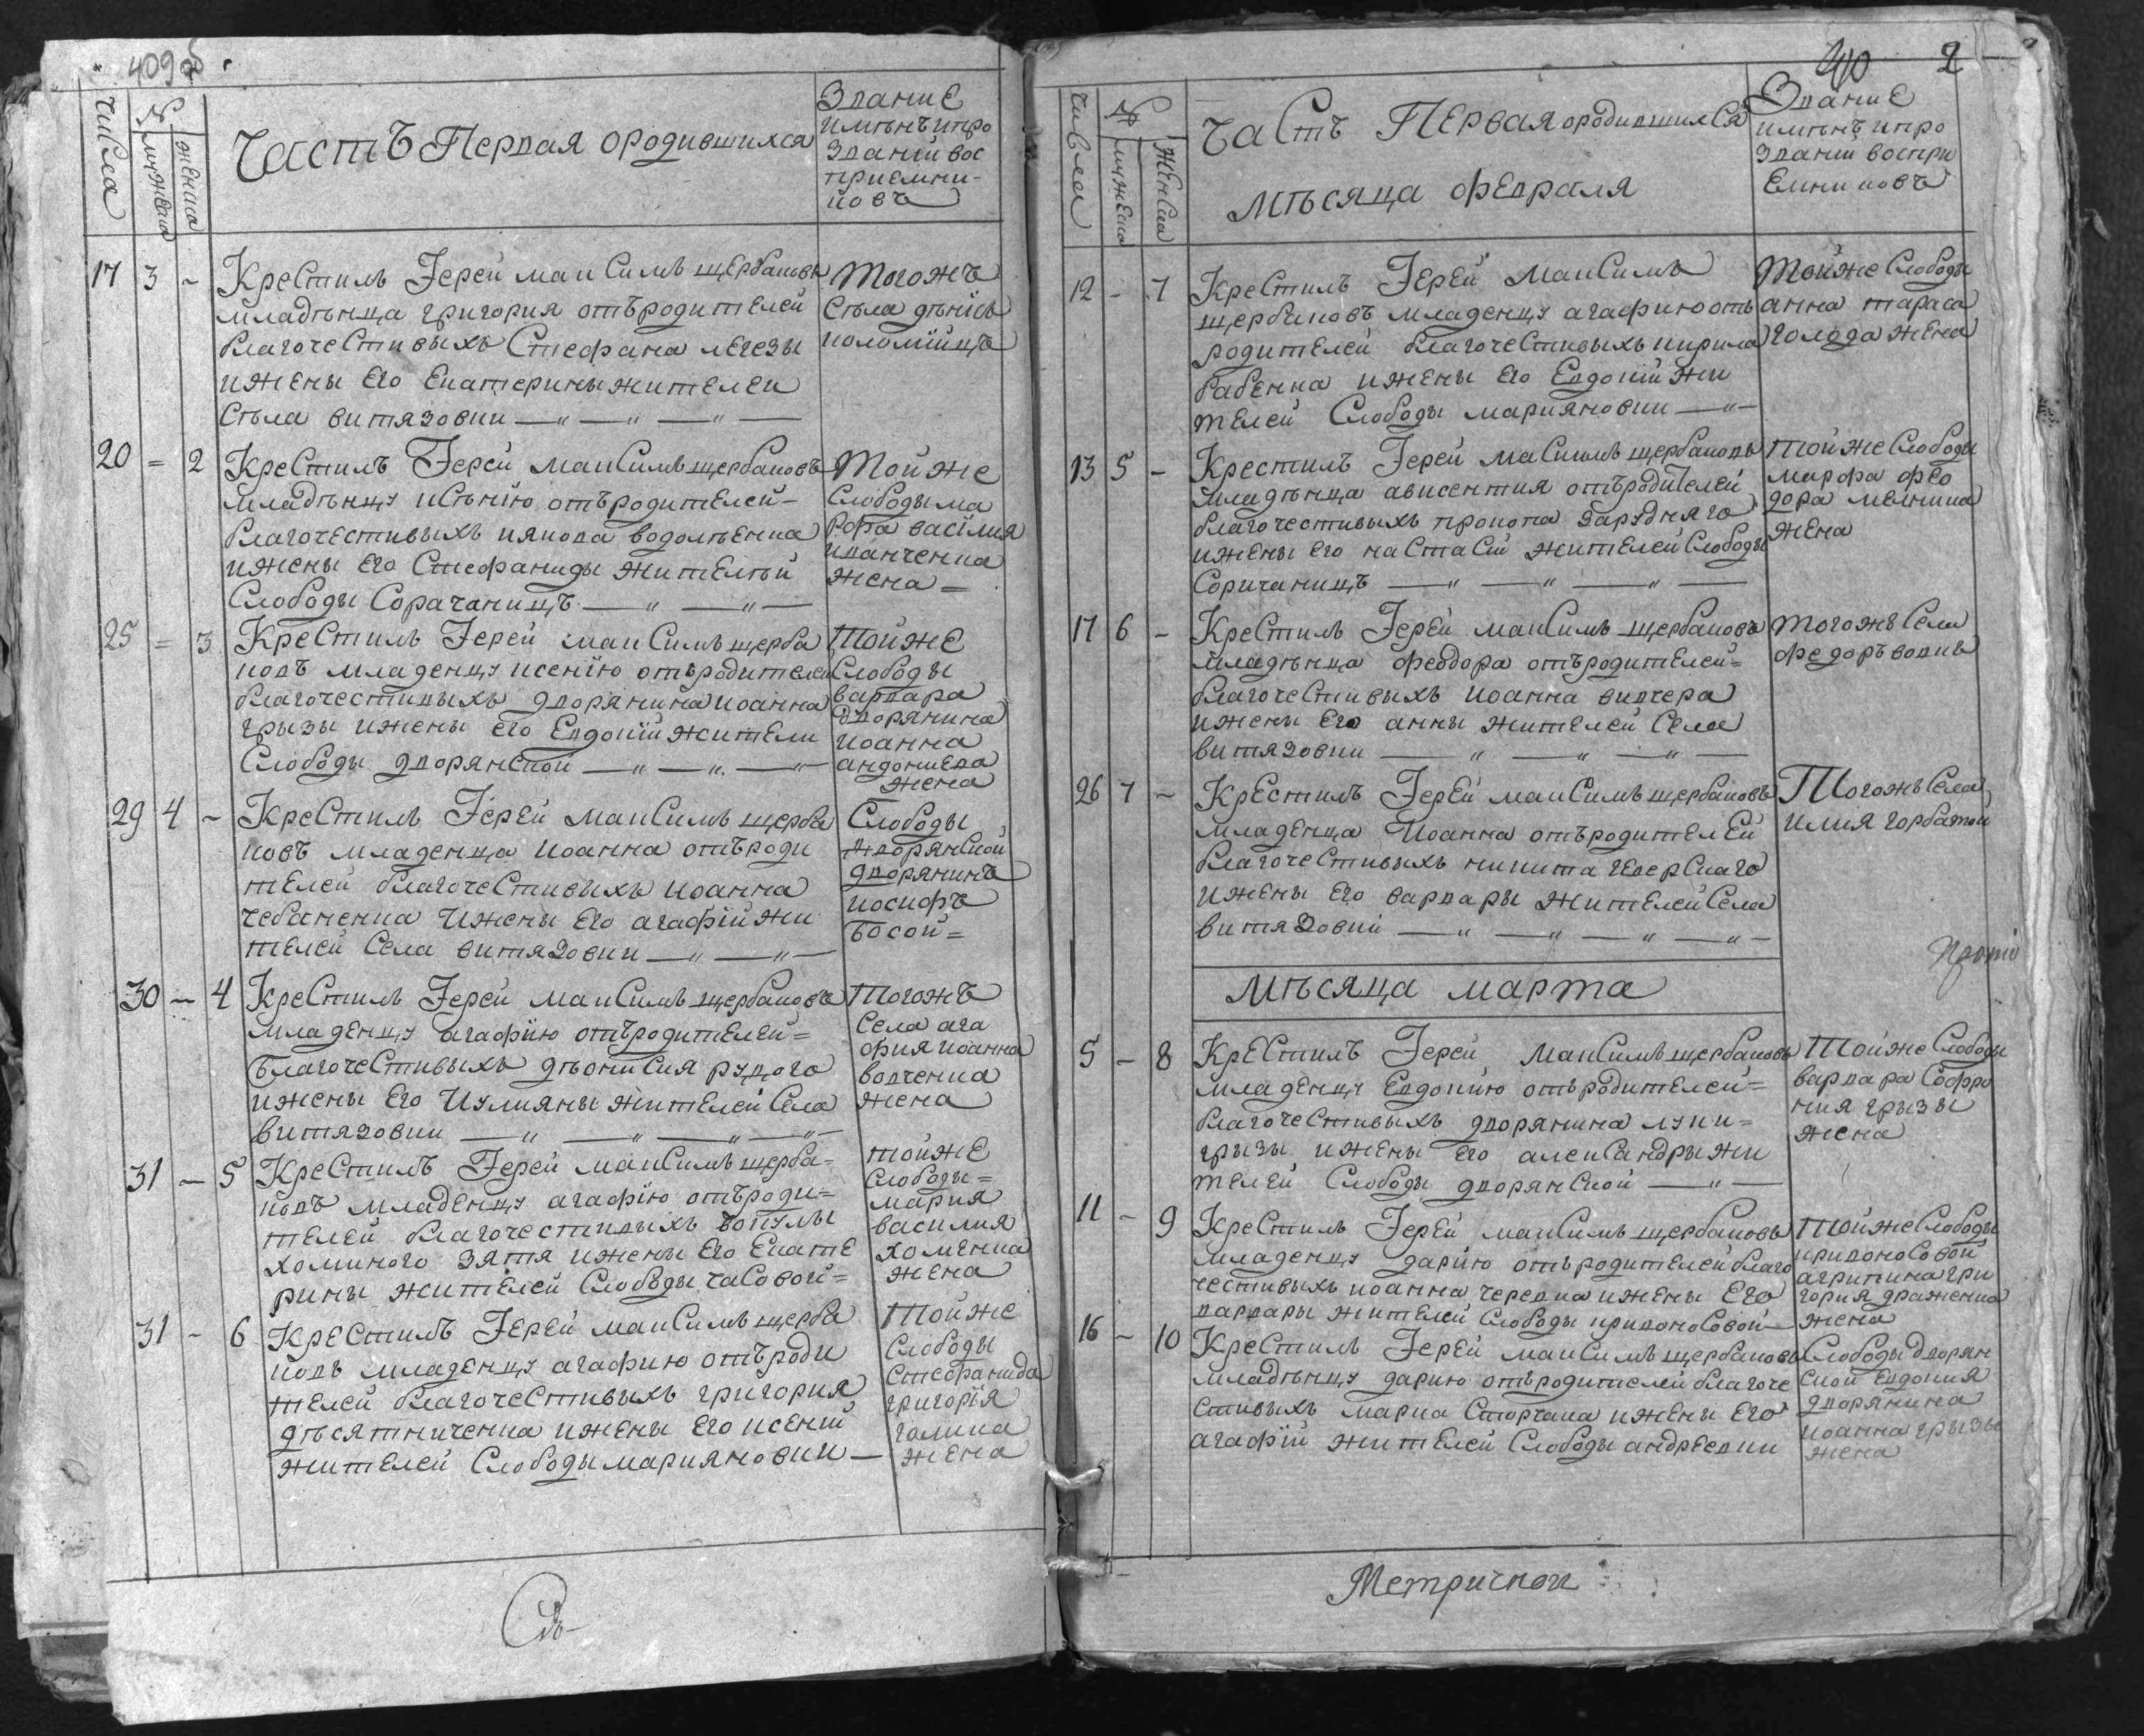 409 об
числа
№
мужеска
женска
Часть Первая ородившихся
Звание
имѣнъ ипро
званій вос
приемни-
ковъ
17 3 -
Крестилъ Іерей максимъ щербаковъ
младѣнца григория отъродителей
благочестивыхъ Стефана легезы
ижены Его Екатерины жителеи
Сѣла витязовки — " — " — " —
тогожъ
Сѣла дѣнісъ
коломійцъ
20 = 2
Крестилъ Іерей максимъ щербаковъ
младѣнцу ксѣнію отъродителей-
благочестивыхъ иякова водолѣенка
ижены Его Стефаниды жителѣй
Слободы Сорачаницъ — " — " —
тойже
Слободы ма
рфа василия
иванченка
жена =
25 = 3
Крестилъ Іерей максимъ щерба
ковъ младенцу ксенію отъродителей
благочестивыхъ дворянина иоанна
грызы ижены его Евдокіи жители
Слободы дворянской — " — " — " —
тойже
Слободы
варвара
дворянина
иоанна
андониева
жена
29 4 -
Крестилъ Іерей максимъ щерба
ковъ младенца иоанна отъроди
телей благочестивыхъ иоанна
чебаненка ижены Его агафій жи
телей Села витязовки — " — " —
Слободы
дворянской
дворянинъ
иосифъ
босой =
30 - 4
Крестилъ Іерей максимъ щербаковъ
младенцу агафію отъродителей =
благочестивыхъ дѣонисия рудого
ижены Его Иулияны жителей Села
витязовки — " — " — " — " —
тогожъ
Села ага
фия иоанна
вовченка
жена
31 - 5
Крестилъ Іерей максимъ щерба-
ковъ младенцу агафію отъроди=
телей благочестивыхъ вокулы
хоминого зятя ижены Его Екате
рины жителей Слободы часовой=
тойже
Слободы=
мария
василия
хоменка
жена
31 - 6
Крестилъ Іерей максимъ щерба
ковъ младенцу агафию отъроди
телей благочестивыхъ григория
дѣсятниченка ижены Его ксеній
жителей Слободы марияновки —
тойже
Слободы
Стефанида
григорія
галика
жена
410 2
числа
№
мужеска
женска
Часть Первая ородившихся
мѣсяца февраля
Звание
имѣнъ ипро
званій воспри
емниковъ
12 - 7
Крестилъ Іерей максимъ
щербаковъ младенцу агафиюотъ
родителей благочестивыхъ кирила
бабенка ижены Его Евдокій жи
телей Слободы марияновки — " —
тойже Слободы
анна тараса
голода жена
13 5 -
Крестилъ Іерей масимъ щербаковъ
младѣнца авксентия отъродителей
благочестивыхъ прокопа заруднаго
ижены его настасій жителей Слободы
Соричаницъ — " — " — " —
тойже Слободы
марфа фео
дора мелника
жена
17 6 -
Крестилъ Іерей максимъ щербаковъ
младѣнца феодора отъродителей=
благочестивыхъ иоанна
ижены Его анны жителей Села
витязовки — " — " — " —
тогожъ Села
федоръ вовкъ
26 7 -
Крестилъ Іерей максимъ щербаковъ
младенца Иоанна отъродителей
благочестивыхъ никита
ижены Его варвары жителей Села
витязовкй — " — " — " — " —
Тогожъ Села
илия горбатий
мѣсяца марта
5 - 8
Крестилъ Іерей максимъ щербаковъ
младенцу Евдокию отъродителей=
благочестивыхъ дворянина луки=
грызы ижены Его александры жи
телей Слободы дворянской — " —
тойже Слободы
варвара Софро
ния грызы
жена
11 - 9
Крестилъ Іерей максимъ щербаковъ
младенцу дарию отъродителей благо
честивыхъ иоанна черевка ижены Его
варвары жителей Слободы кривоносовой
тойже Слободы
кривоносовой
агрипина гри
гория драженка
жена
16 - 10
Крестилъ Іерей максимъ щербаковъ
младѣнцу дарию отъродителей благоче
стивыхъ марка Сторчака ижены Его
агафій жителей Слободы андреевки
Слободы дворян
ской Евдокия
дворянина
иоанна грызы
жена
Метрической